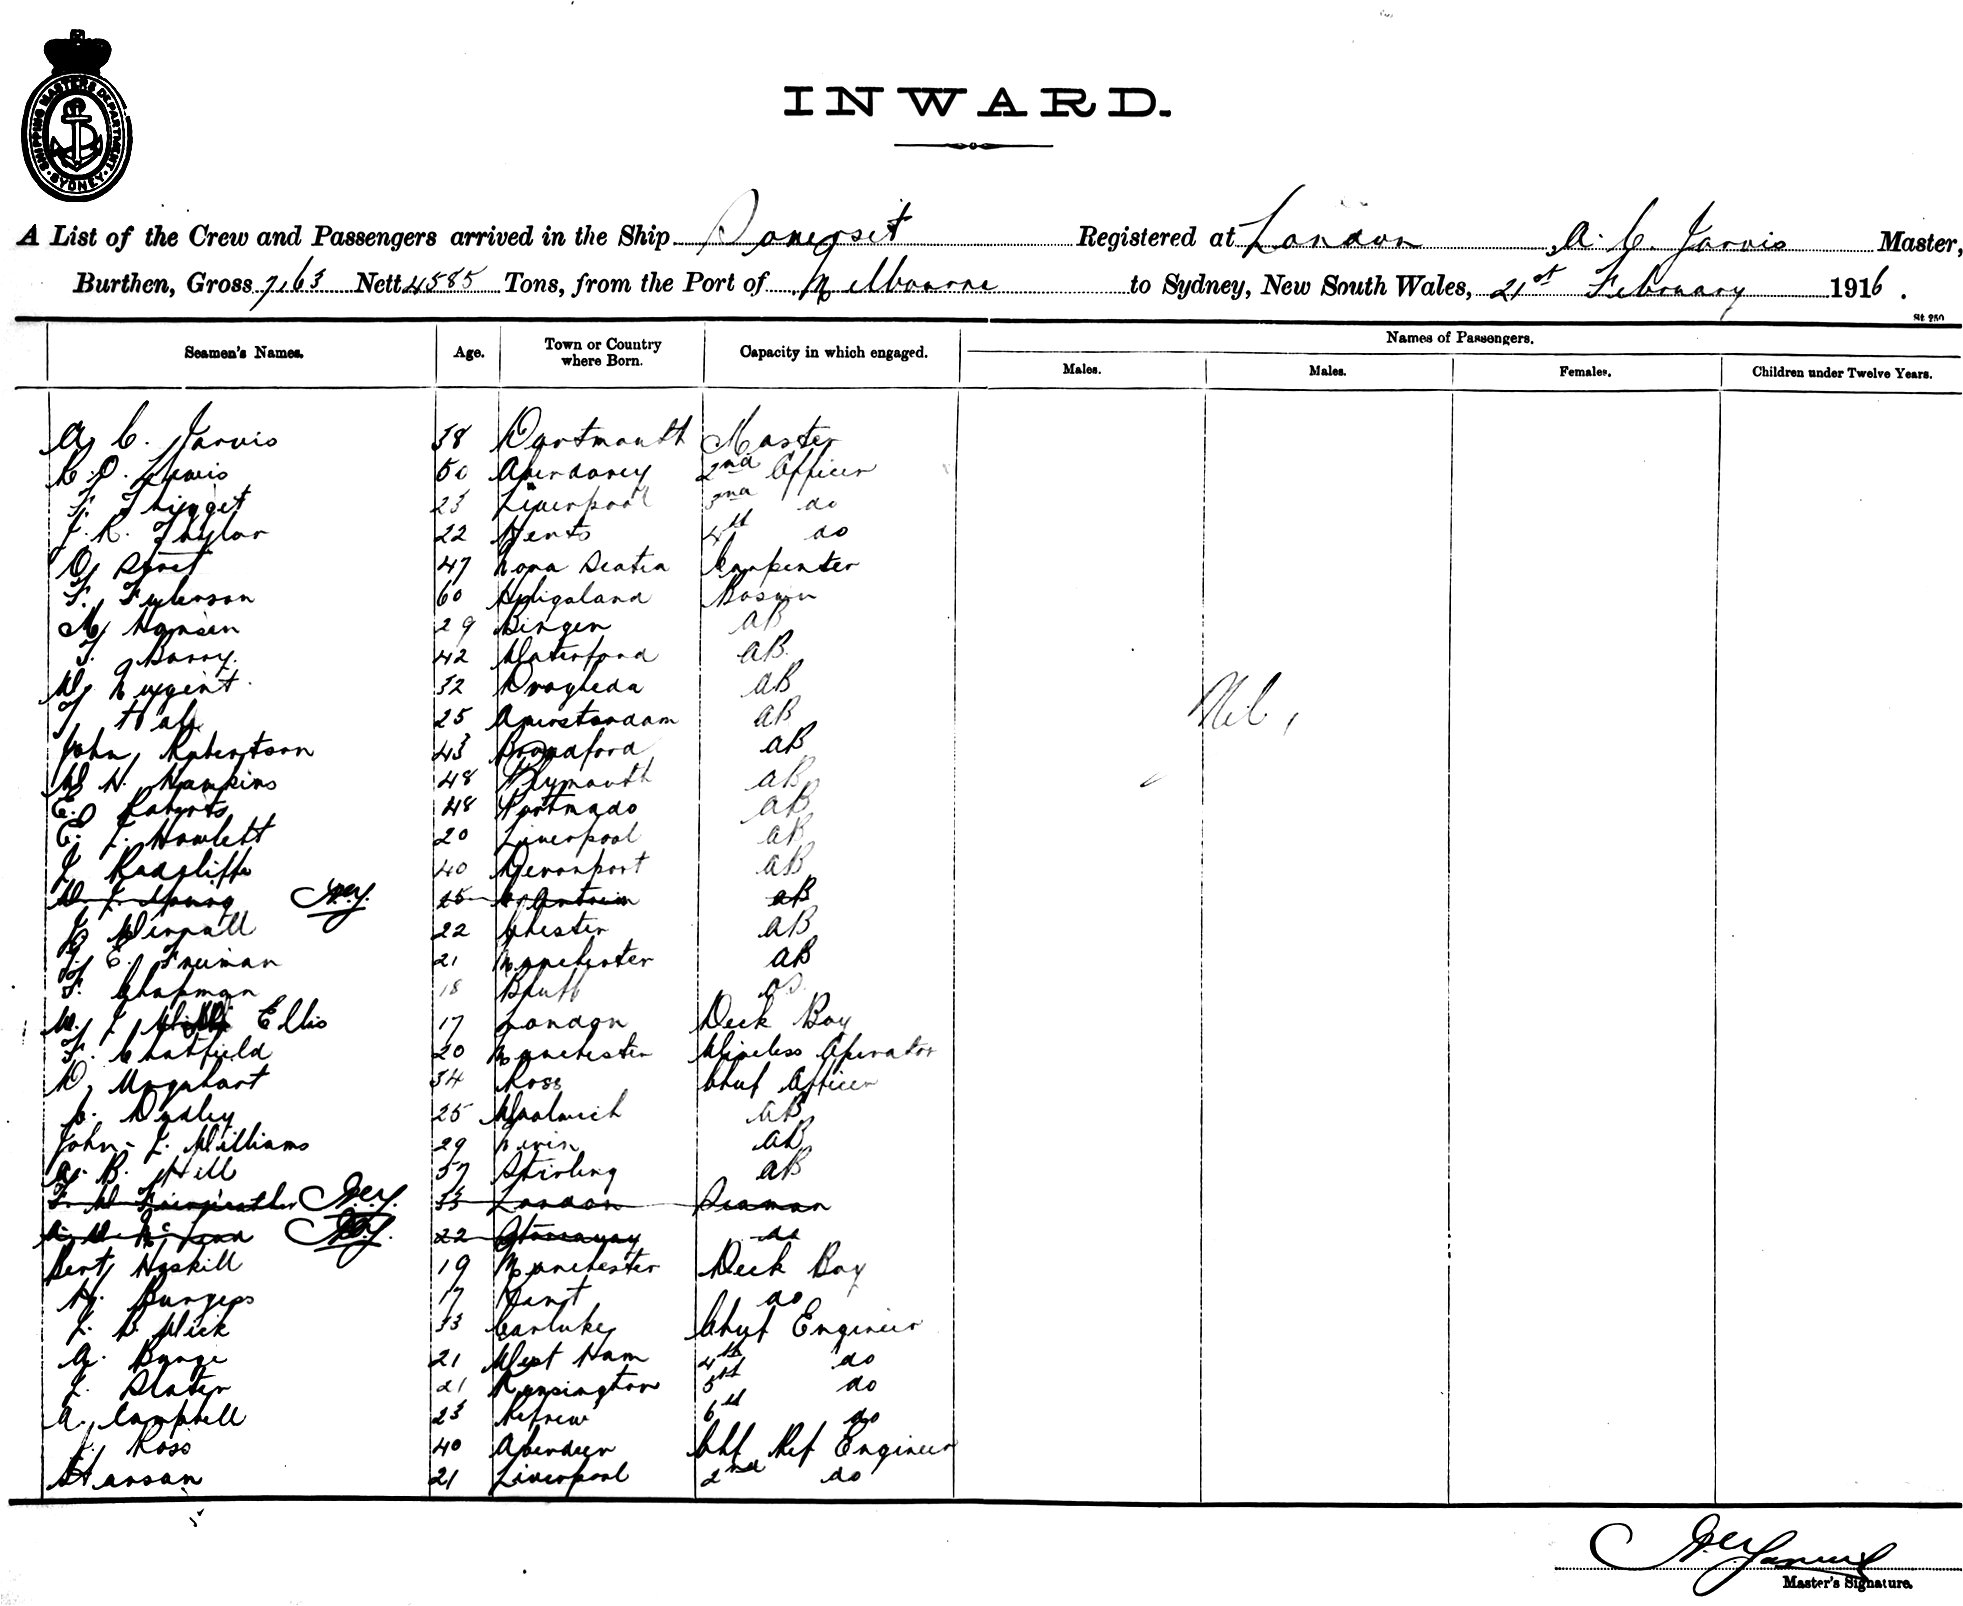 SHIPPING MASTERS DEPARTMENT · SYDNEY ·
INWARD.
A List of the Crew and Passengers arrived in the Ship Somerset Registered at London, A. C. Jarvis Master,
Burthen, Gross 7163 Nett 4585 Tons, from the Port of Melbourne to Sydney, New South Wales, 21st February 1916.
St. 250
Seamen's Names. Age. Town or Country where Born. Capacity in which engaged. Names of Passengers.
Males. Males. Females. Children under Twelve Years.
A. C. Jarvis 38 Dartmouth Master
C. D. Lewis 50 Aberdovey 2nd Officer
F. 23 Liverpool 3rd do
J. R. Taylor 22 Herts 4th do
47 Nova Scotia Carpenter
F. 60 Heligoland Bosun
M. Hansen 29 Bergen AB
T. Barry. 42 Waterford AB
W. Nugent 32 Drogheda AB
Nil,
25 Amsterdam AB
John Robertson 43 AB
W. H. Hawkins 48 Plymouth AB
E. Roberts 48 Portmado AB
E. J. Howlett 20 Liverpool AB
J. Radcliffe 40 Devonport AB
W. J. Young 25 Co Antrim AB
J. 22 Chester AB
E. Freeman 21 Manchester AB
F. Chapman 18 Bluff OS
W. J. Ellis 17 London Deck Boy
F. Chatfield 20 Manchester Wireless Operator
D. Urquhart 34 Ross Chief Officer
C. Dudley 25 Woolwich AB
John L. Williams 29 Nevin AB
A. B. Hill 37 Stirling AB
F. W. Fairweather 33 London Seaman
22 Stornoway do
Bert Haskill 19 Manchester Deck Boy
H. Burgess 17 do
J. B. Dick 33 Carluke Chief Engineer
A. Bunge 21 West Ham 4th do
J. Slater 21 Kensington 5th do
A. Campbell 23 Refrew 6th do
Ross 40 Aberdeen Chf Ref Engineer
Hanson 21 Liverpool 2nd do
Master's Signature.